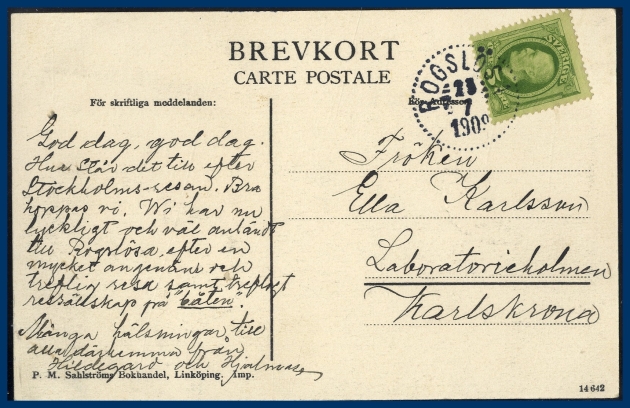 BREVKORT
CARTE POSTALE
För skriftliga moddelanden:
För Adressen
ROGSLÖSA
23
7
1909
SVERIGE
God dag, god dag.
Hur står det till efter
Stockholms-resan. Bra
hoppas vi. Wi har nu
lyckligt och väl anländt
till Rogslösa, efter en
mycket angenäm och
treflig resa samt trefligt
ressällskap på "båten".
Många hälsningar till
alla därhemma från
Hildegard och
Fröken
Ella Karlsson
Laboratorieholmen
Karlskrona
P. M. Sahlströms Bokhandel, Linköping. Imp.
14642